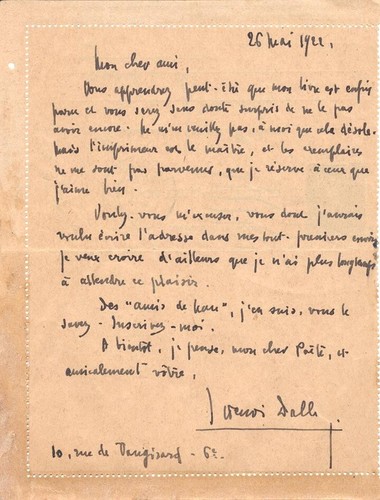 26 Mai 1922.
Mon cher ami,
Vous apprendrez peut-être que mon livre est enfin
paru et vous serez sans doute surpris de ne le pas
avoir encore. Ne m'en veuillez pas, à moi que cela désole.
Mais l'imprimeur est le maître, et les exemplaires
ne me sont pas parvenus, que je réserve à ceux que
j'aime bien.
Voulez-vous m'excuser, vous dont j'aurais
voulu écrire l'adresse dans mes tout-premiers envois
je veux croire d'ailleurs que je n'ai plus longtemps
à attendre ce plaisir.
Des "amis de", j'en suis, vous le
savez. Inscrivez-moi.
A bientôt, je pense, mon cher Poète, et
amicalement vôtre,
Henri
10, rue de Vaugirard - 6e.